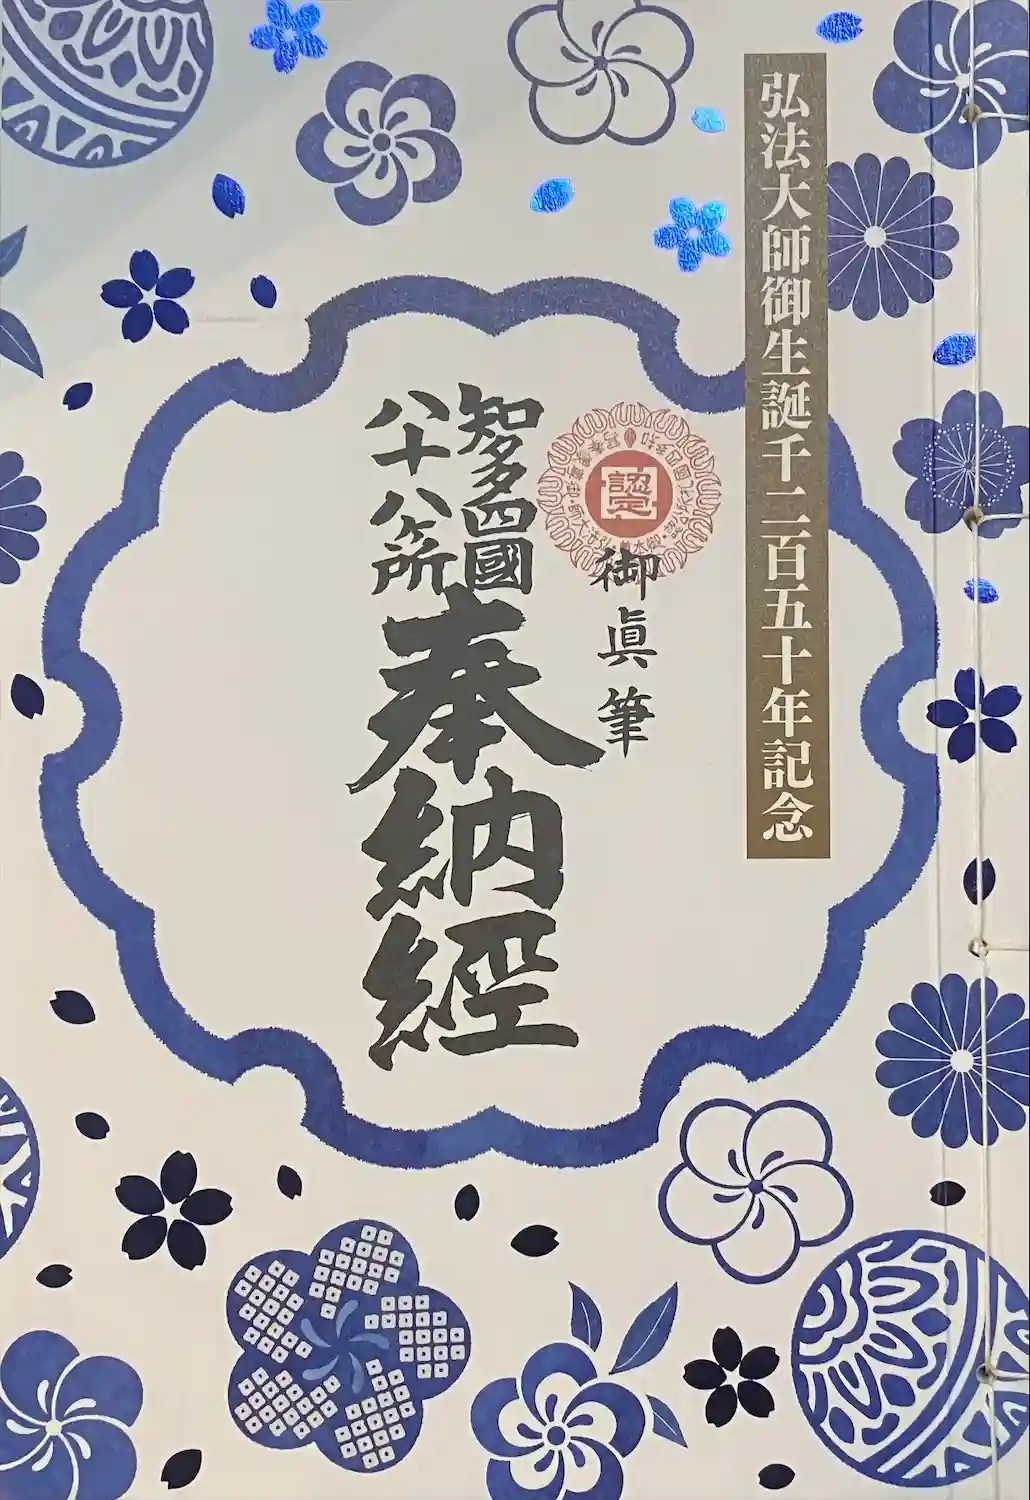 弘法大師御生誕千二百五十年記念
認定
御眞筆
知多四國
八十八ヶ所
奉納經